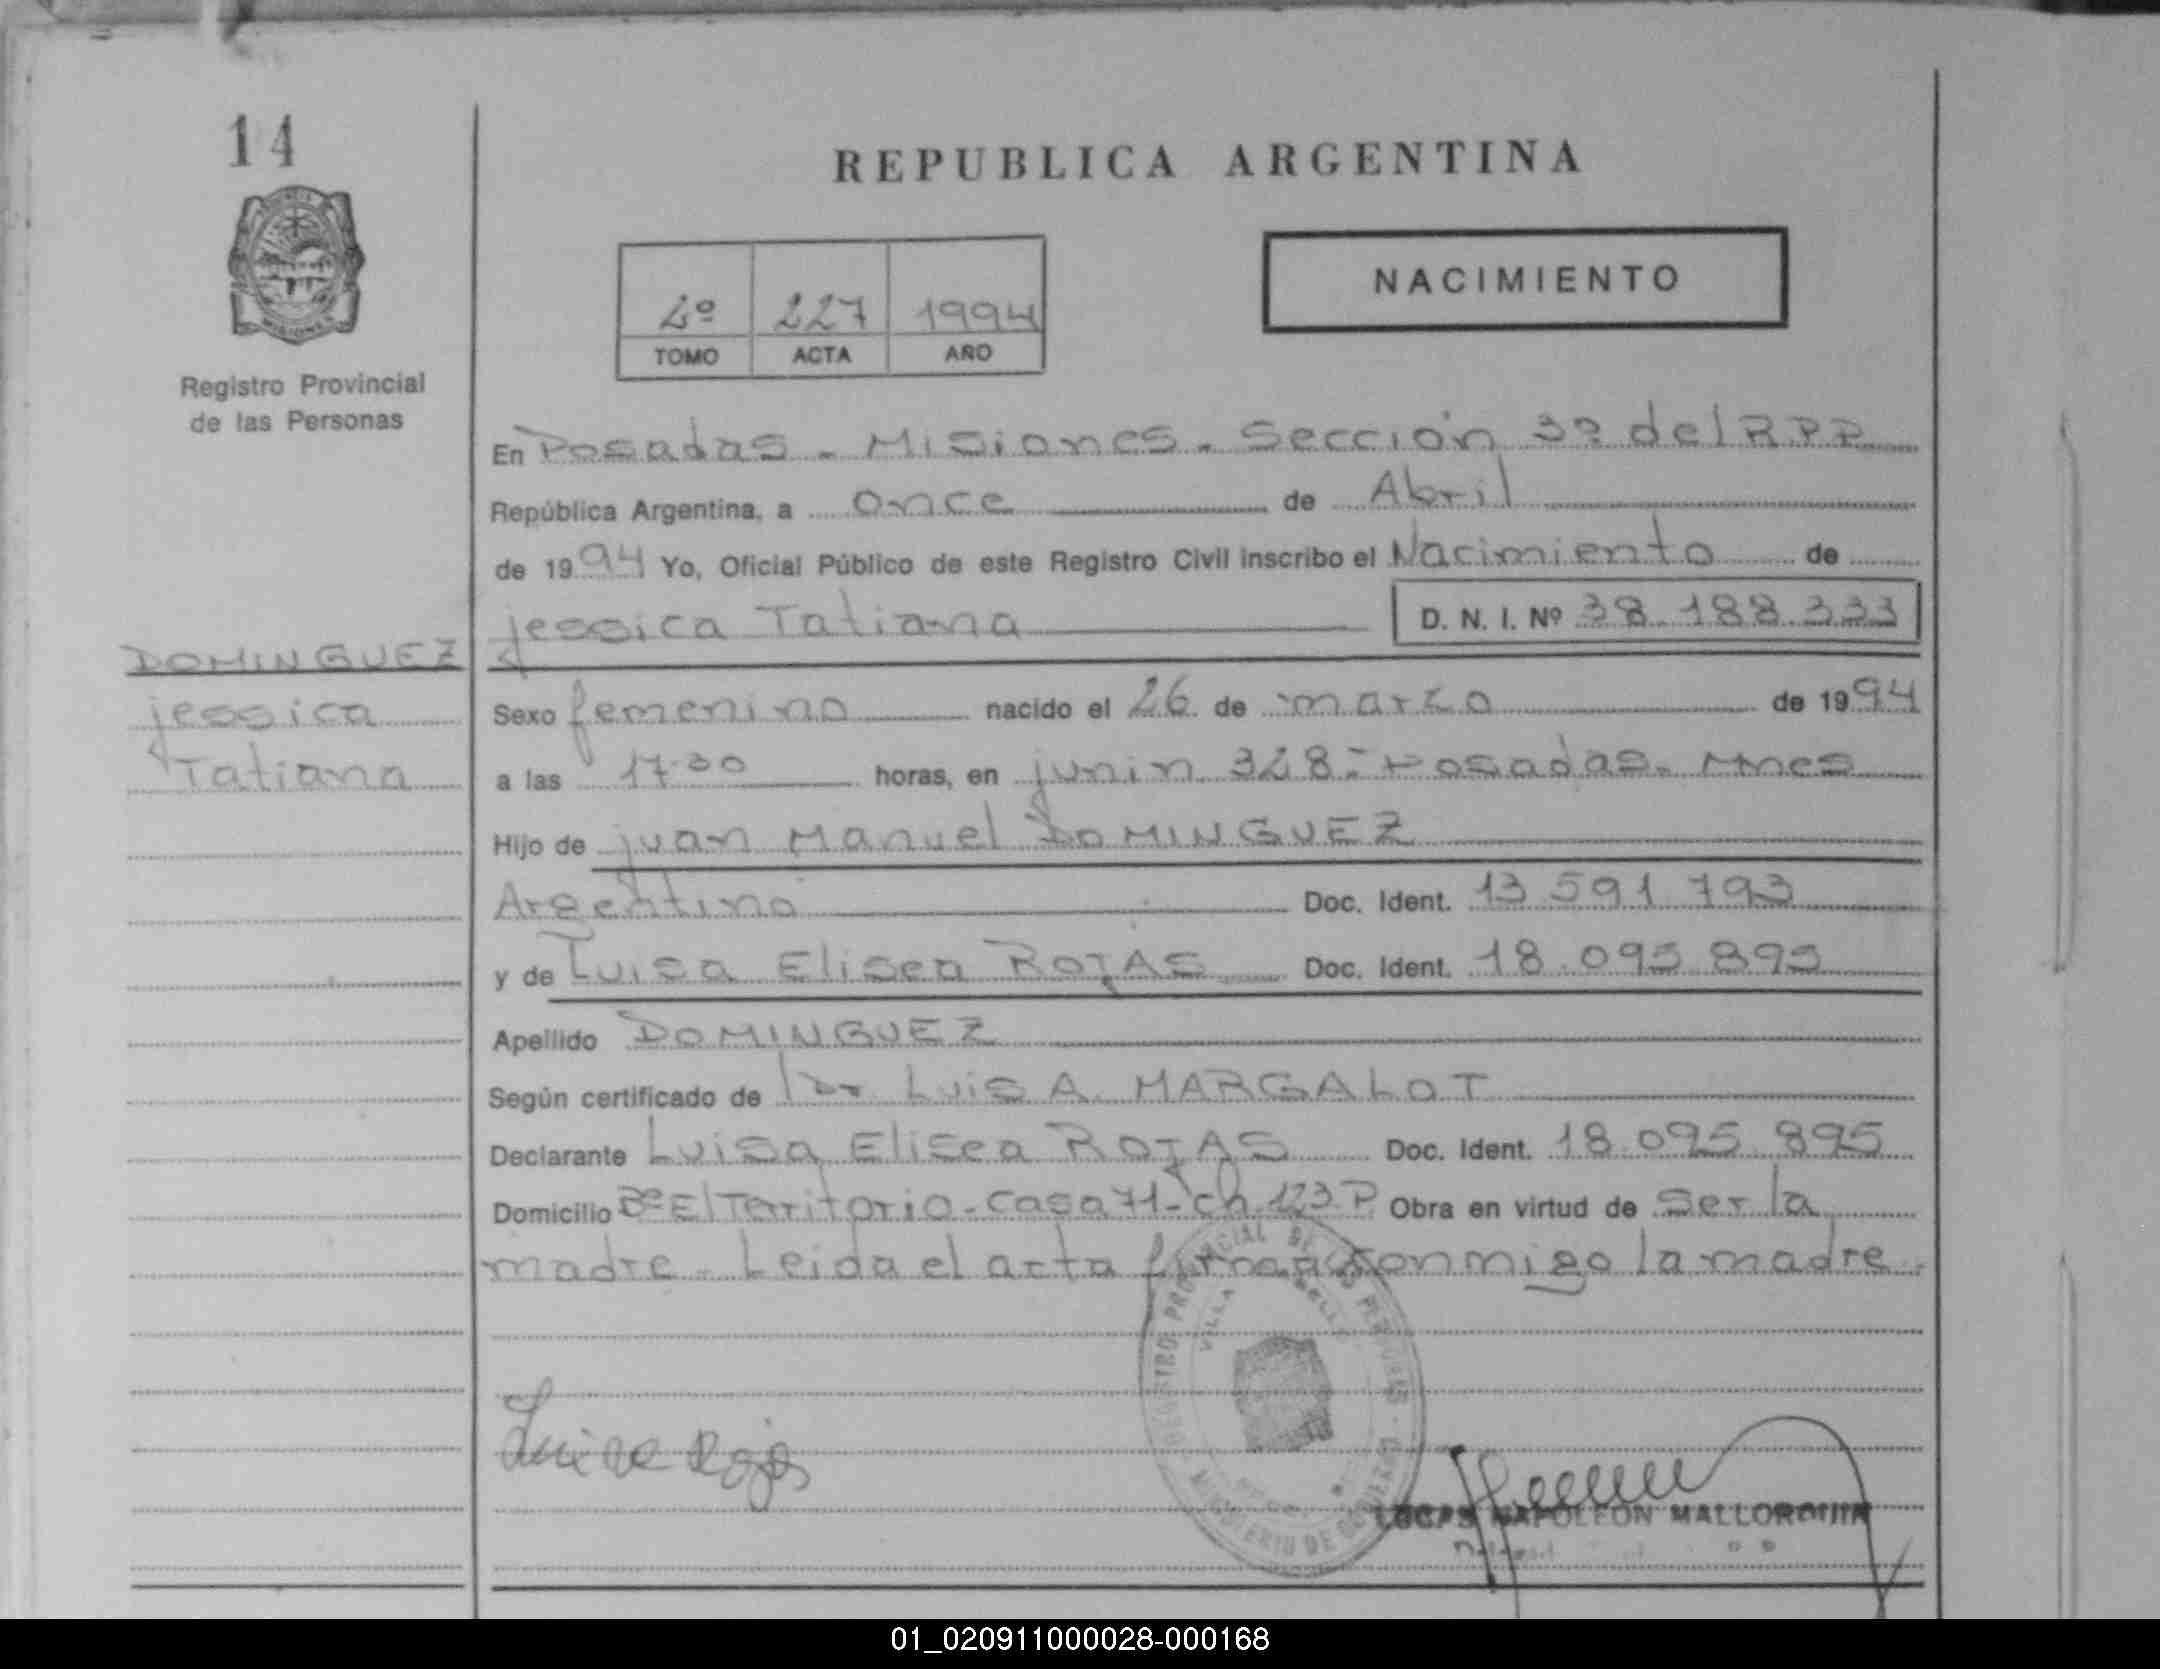 14
REPUBLICA ARGENTINA
NACIMIENTO
2º 227 1994
TOMO ACTA AÑO
Registro Provincial
de las Personas
En Posadas - Misiones - Sección 3º del R.P.P.
República Argentina, a once de Abril
de 1994 Yo, Oficial Público de este Registro Civil inscribo el Nacimiento de
Jessica Tatiana D. N. I. Nº 38.188.333
DOMINGUEZ
Jessica
Tatiana
Sexo femenino nacido el 26 de marzo de 1994
a las 17.30 horas, en junin 328.- Posadas. Mnes
Hijo de juan Manuel DOMINGUEZ
Argentino Doc. Ident. 13 591 793
y de Luisa Elisea ROJAS Doc. Ident. 18.095 895
Apellido DOMINGUEZ
Según certificado de Dr. Luis A. MARGALOT
Declarante Luisa Elisea ROJAS Doc. Ident. 18.095.895
Domicilio Bº El Territorio - casa 71 - ch. 123 P. Obra en virtud de ser la
madre - Leida el acta firma conmigo la madre.
Luisa Rojas
REGISTRO PROVINCIAL DE LAS PERSONAS
VILLA
MINISTERIO DE GOBIERNO
LUCAS NAPOLEON MALLORQUIN
01_020911000028-000168